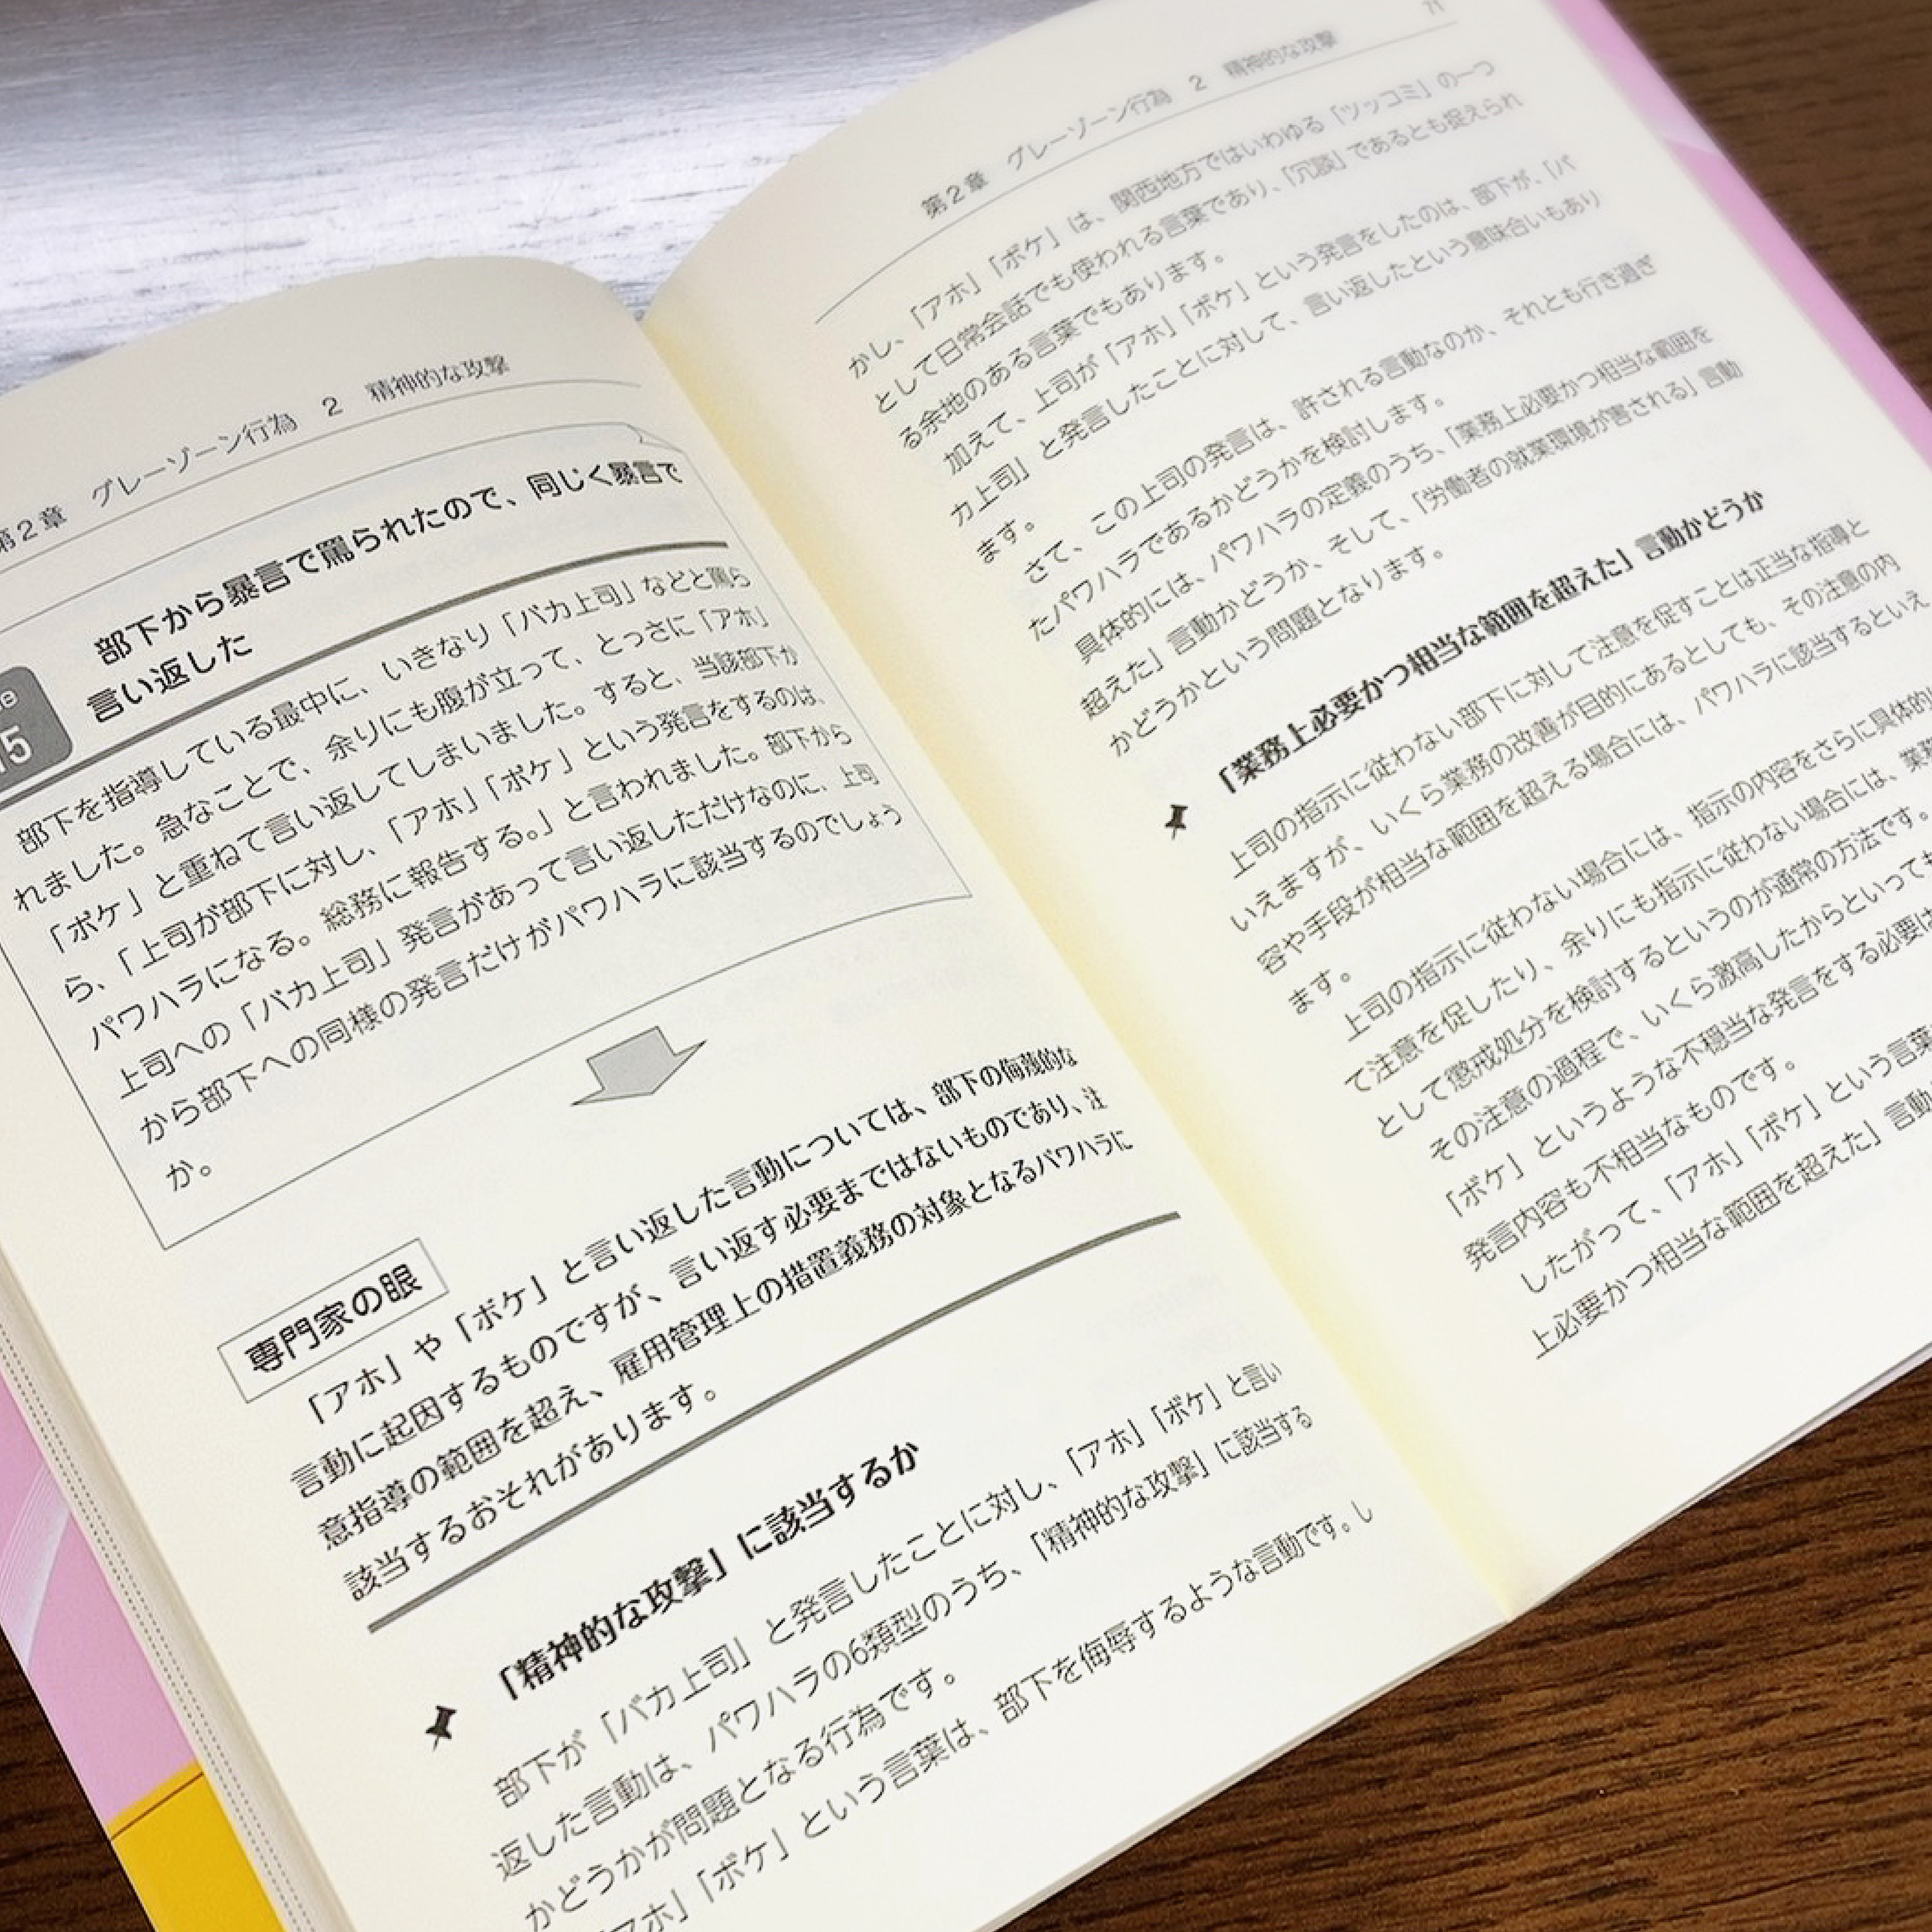 第2章　グレーゾーン行為　2　精神的な攻撃
部下から暴言で罵られたので、同じく暴言で
言い返した
15
部下を指導している最中に、いきなり「バカ上司」などと罵ら
れました。急なことで、余りにも腹が立って、とっさに「アホ」
「ボケ」と重ねて言い返してしまいました。すると、当該部下か
ら、「上司が部下に対し、「アホ」「ボケ」という発言をするのは、
パワハラになる。総務に報告する。」と言われました。部下から
上司への「バカ上司」発言があって言い返しただけなのに、上司
から部下への同様の発言だけがパワハラに該当するのでしょう
か。
専門家の眼
「アホ」や「ボケ」と言い返した言動については、部下の侮蔑的な
言動に起因するものですが、言い返す必要まではないものであり、注
意指導の範囲を超え、雇用管理上の措置義務の対象となるパワハラに
該当するおそれがあります。
「精神的な攻撃」に該当するか
部下が「バカ上司」と発言したことに対し、「アホ」「ボケ」と言い
返した言動は、パワハラの6類型のうち、「精神的な攻撃」に該当する
かどうかが問題となる行為です。
「アホ」「ボケ」という言葉は、部下を侮辱するような言動です。し
71
第2章　グレーゾーン行為　2　精神的な攻撃
かし、「アホ」「ボケ」は、関西地方ではいわゆる「ツッコミ」の一つ
として日常会話でも使われる言葉であり、「冗談」であるとも捉えられ
る余地のある言葉でもあります。
加えて、上司が「アホ」「ボケ」という発言をしたのは、部下が、「バ
カ上司」と発言したことに対して、言い返したという意味合いもあり
ます。
さて、この上司の発言は、許される言動なのか、それとも行き過ぎ
たパワハラであるかどうかを検討します。
具体的には、パワハラの定義のうち、「業務上必要かつ相当な範囲を
超えた」言動かどうか、そして、「労働者の就業環境が害される」言動
かどうかという問題となります。
「業務上必要かつ相当な範囲を超えた」言動かどうか
上司の指示に従わない部下に対して注意を促すことは正当な指導と
いえますが、いくら業務の改善が目的にあるとしても、その注意の内
容や手段が相当な範囲を超える場合には、パワハラに該当するといえ
ます。
上司の指示に従わない場合には、指示の内容をさらに具体的
て注意を促したり、余りにも指示に従わない場合には、業務
として懲戒処分を検討するというのが通常の方法です。
その注意の過程で、いくら激高したからといっても
「ボケ」というような不穏当な発言をする必要は
発言内容も不相当なものです。
したがって、「アホ」「ボケ」という言葉
上必要かつ相当な範囲を超えた」言動